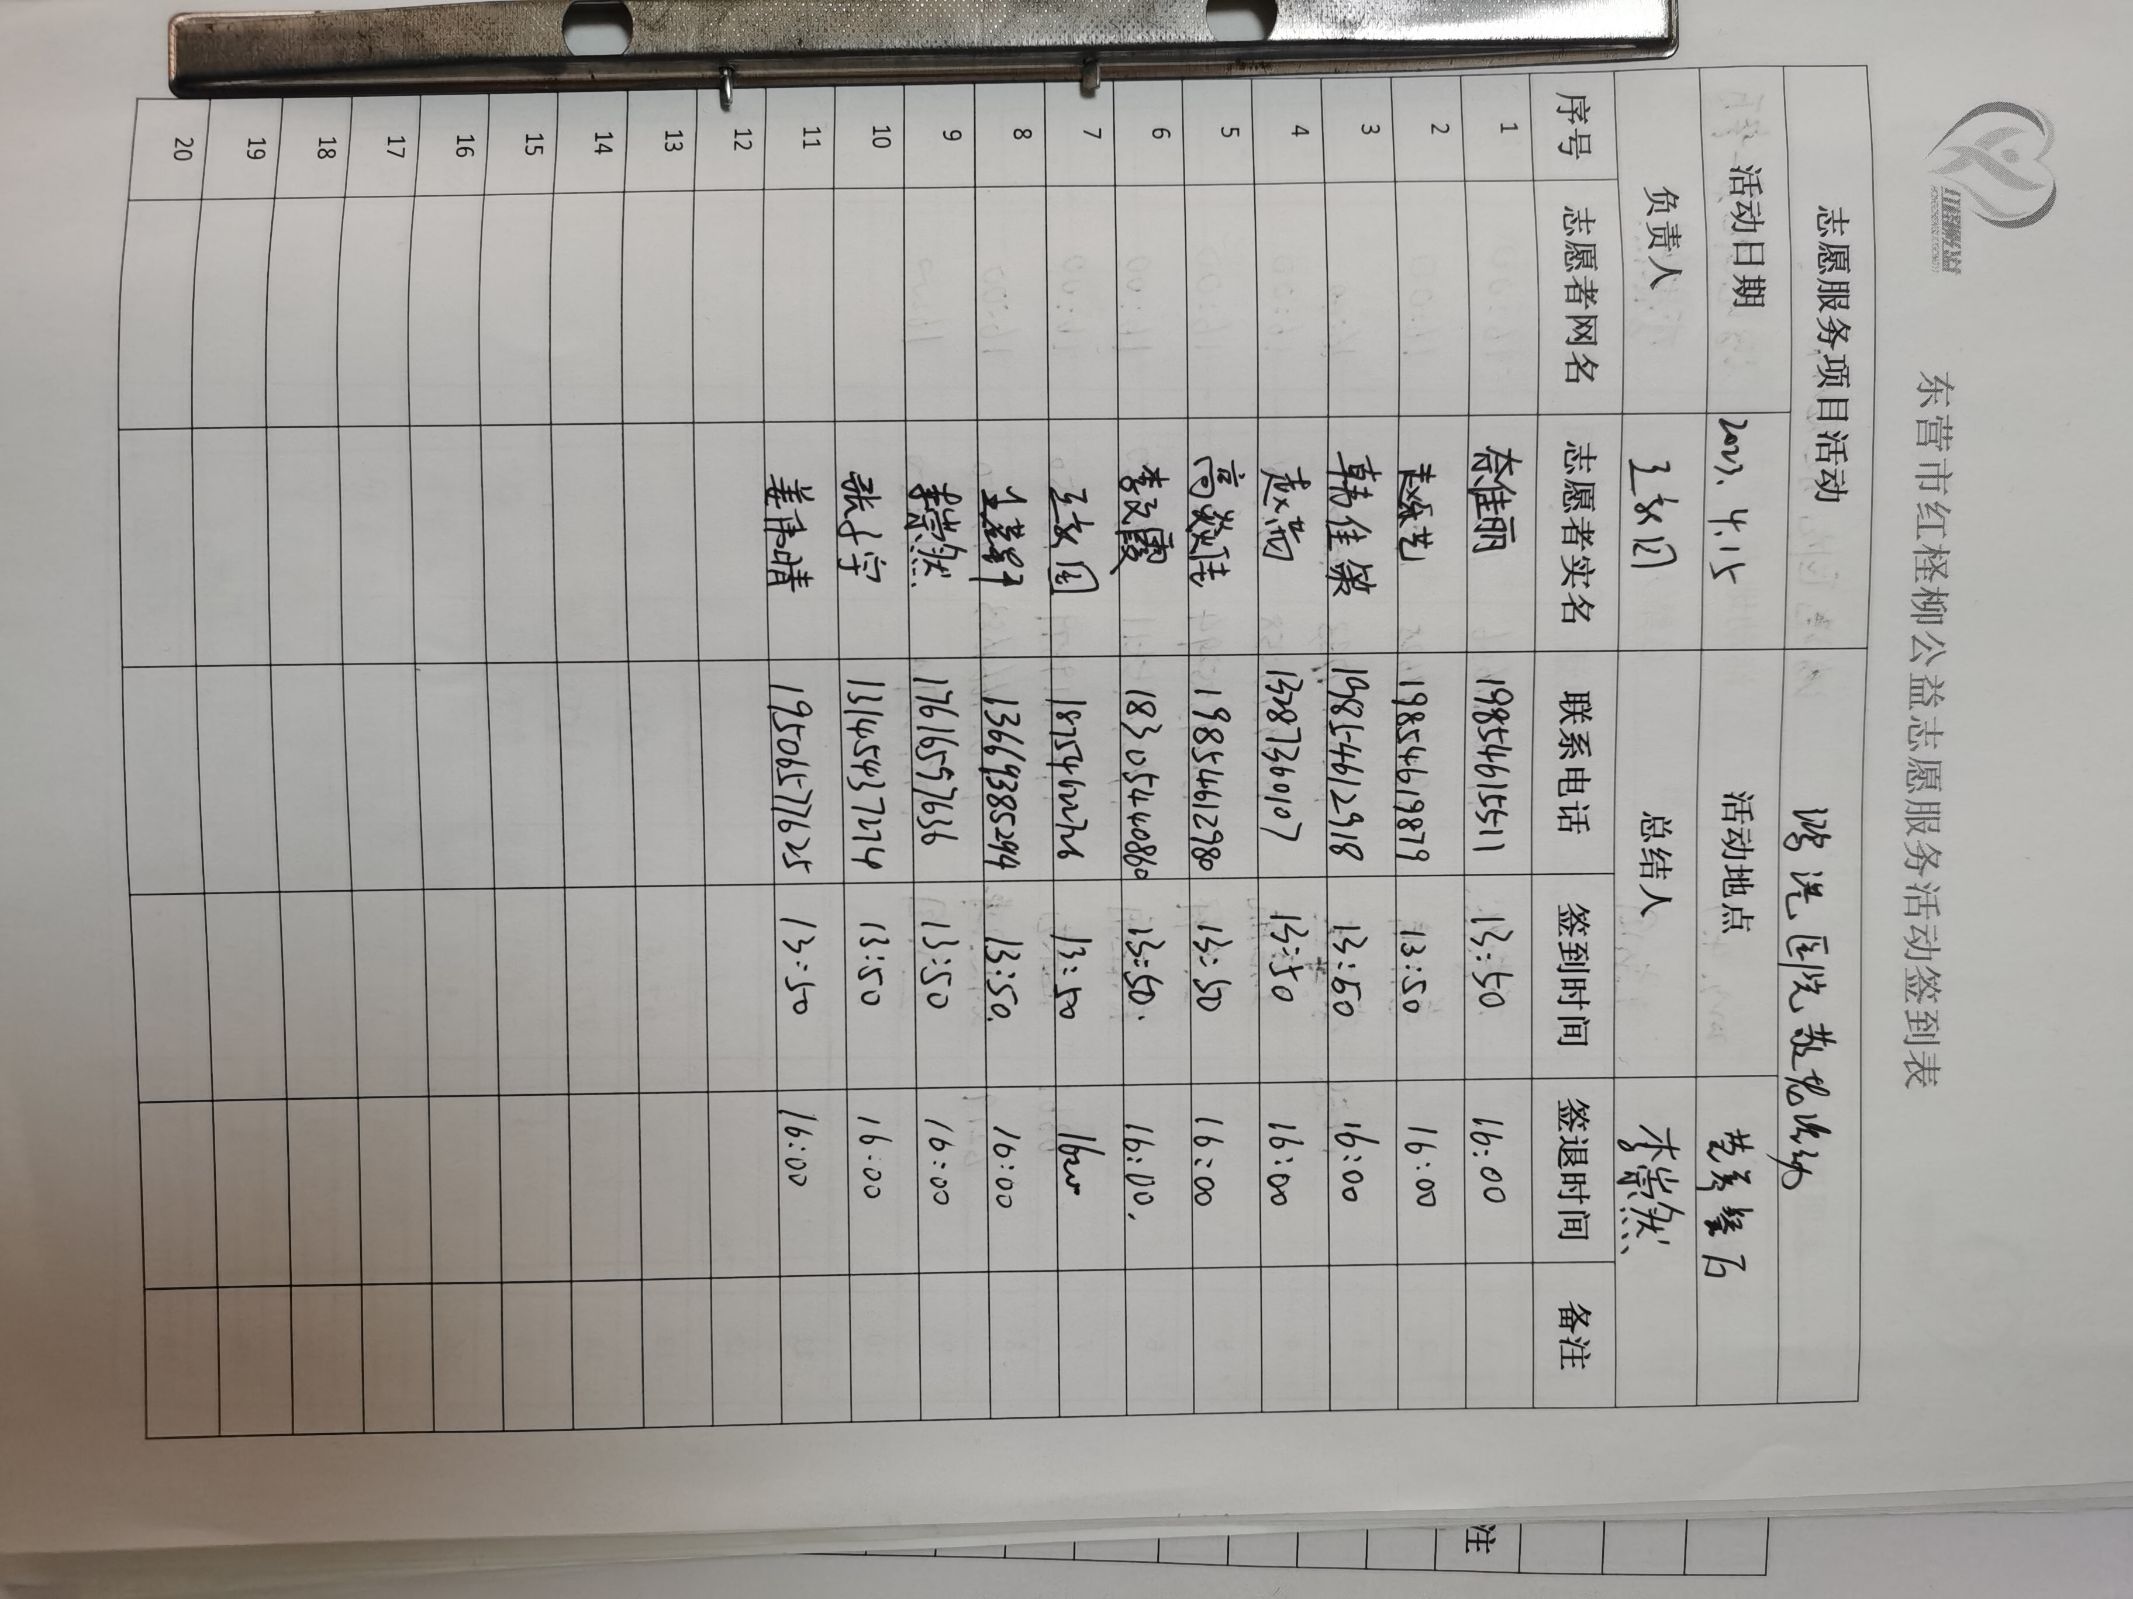 红柽柳公益
东营市红柽柳公益志愿服务活动签到表
志愿服务项目活动
活动日期 2023.4.15 活动地点
负责人 总结人 李崇然
序号 志愿者网名 志愿者实名 联系电话 签到时间 签退时间 备注
1 19854615511 13:50 16:00
2 赵乐艺 19854619879 13:50 16:00
3 韩佳策 19854612918 13:50 16:00
4 13287360107 13:50 16:00
5 19854612980 13:50 16:00
6 李文霞 18305440860 13:50. 16:00.
7 18754662726 13:50
8 13669385294 13:50. 16:00
9 李崇然 17616597636 13:50 16:00
10 张子宇 13145437274 13:50 16:00
11 姜雨晴 19506577625 13:50 16:00
12
13
14
15
16
17
18
19
20
注